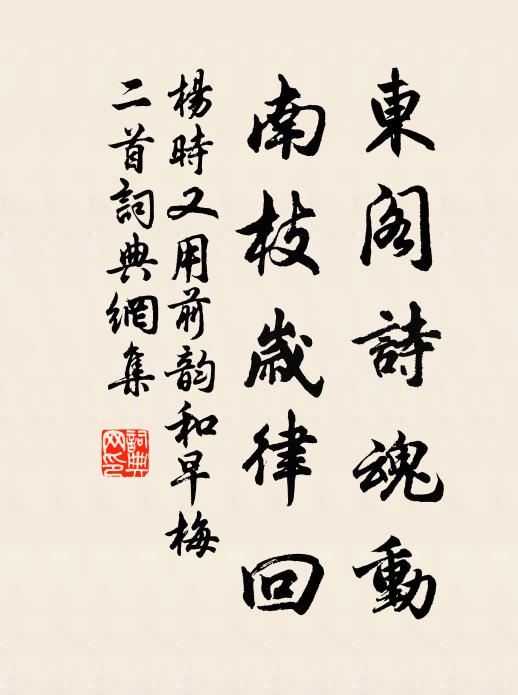 東閣詩魂動
南枝歲律回
楊時又用前韵和早梅
二首詞典網集
詞典
网印